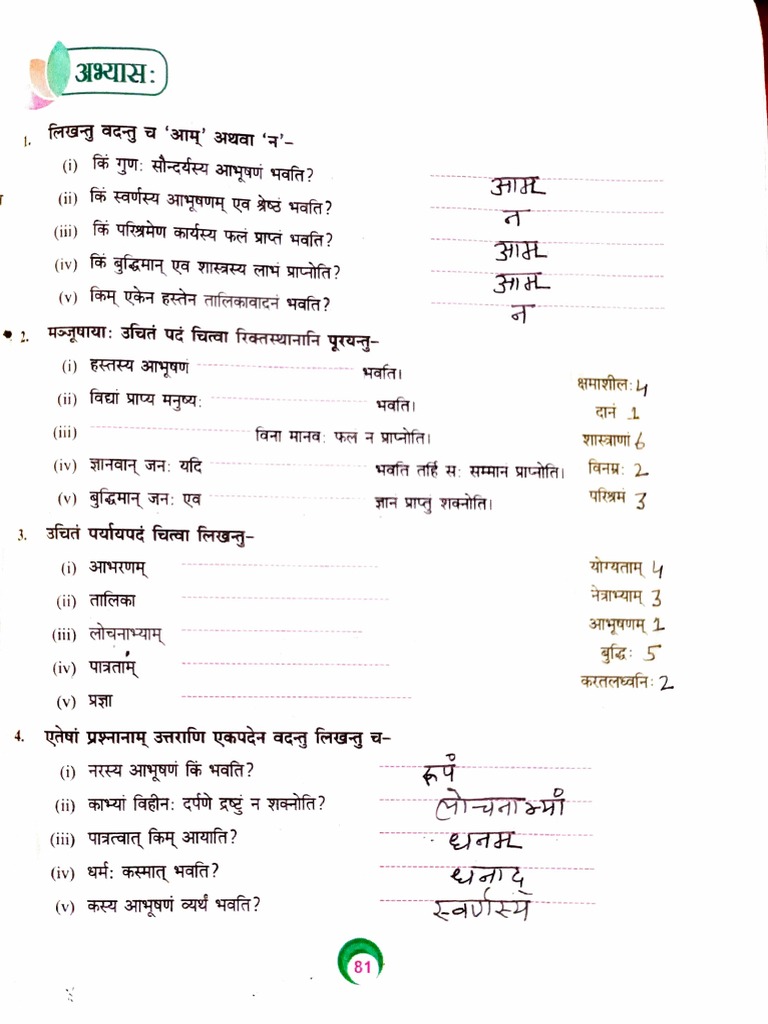 अभ्यासः
1. लिखन्तु वदन्तु च 'आम्' अथवा 'न'–
(i) किं गुणः सौन्दर्यस्य आभूषणं भवति? आम्
(ii) किं स्वर्णस्य आभूषणम् एव श्रेष्ठं भवति? न
(iii) किं परिश्रमेण कार्यस्य फलं प्राप्तं भवति? आम्
(iv) किं बुद्धिमान् एव शास्त्रस्य लाभं प्राप्नोति? आम्
(v) किम् एकेन हस्तेन तालिकावादनं भवति? न
2. मञ्जूषायाः उचितं पदं चित्वा रिक्तस्थानानि पूरयन्तु–
(i) हस्तस्य आभूषणं भवति। क्षमाशीलः 4
(ii) विद्यां प्राप्य मनुष्यः भवति। दानं 1
(iii) विना मानवः फलं न प्राप्नोति। शास्त्राणां 6
(iv) ज्ञानवान् जनः यदि भवति तर्हि सः सम्मानं प्राप्नोति। विनम्रः 2
(v) बुद्धिमान् जनः एव ज्ञान प्राप्तुं शक्नोति। परिश्रमं 3
3. उचितं पर्यायपदं चित्वा लिखन्तु–
(i) आभरणम् योग्यताम् 4
(ii) तालिका नेत्राभ्याम् 3
(iii) लोचनाभ्याम् आभूषणम् 1
(iv) पात्रताम् बुद्धिः 5
(v) प्रज्ञा करतलध्वनिः 2
4. एतेषां प्रश्नानाम् उत्तराणि एकपदेन वदन्तु लिखन्तु च–
(i) नरस्य आभूषणं किं भवति? रूपं
(ii) काभ्यां विहीनः दर्पणे द्रष्टुं न शक्नोति? लोचनाभ्यां
(iii) पात्रत्वात् किम् आयाति? धनम्
(iv) धर्मः कस्मात् भवति? धनाद्
(v) कस्य आभूषणं व्यर्थं भवति? स्वर्णस्यं
81